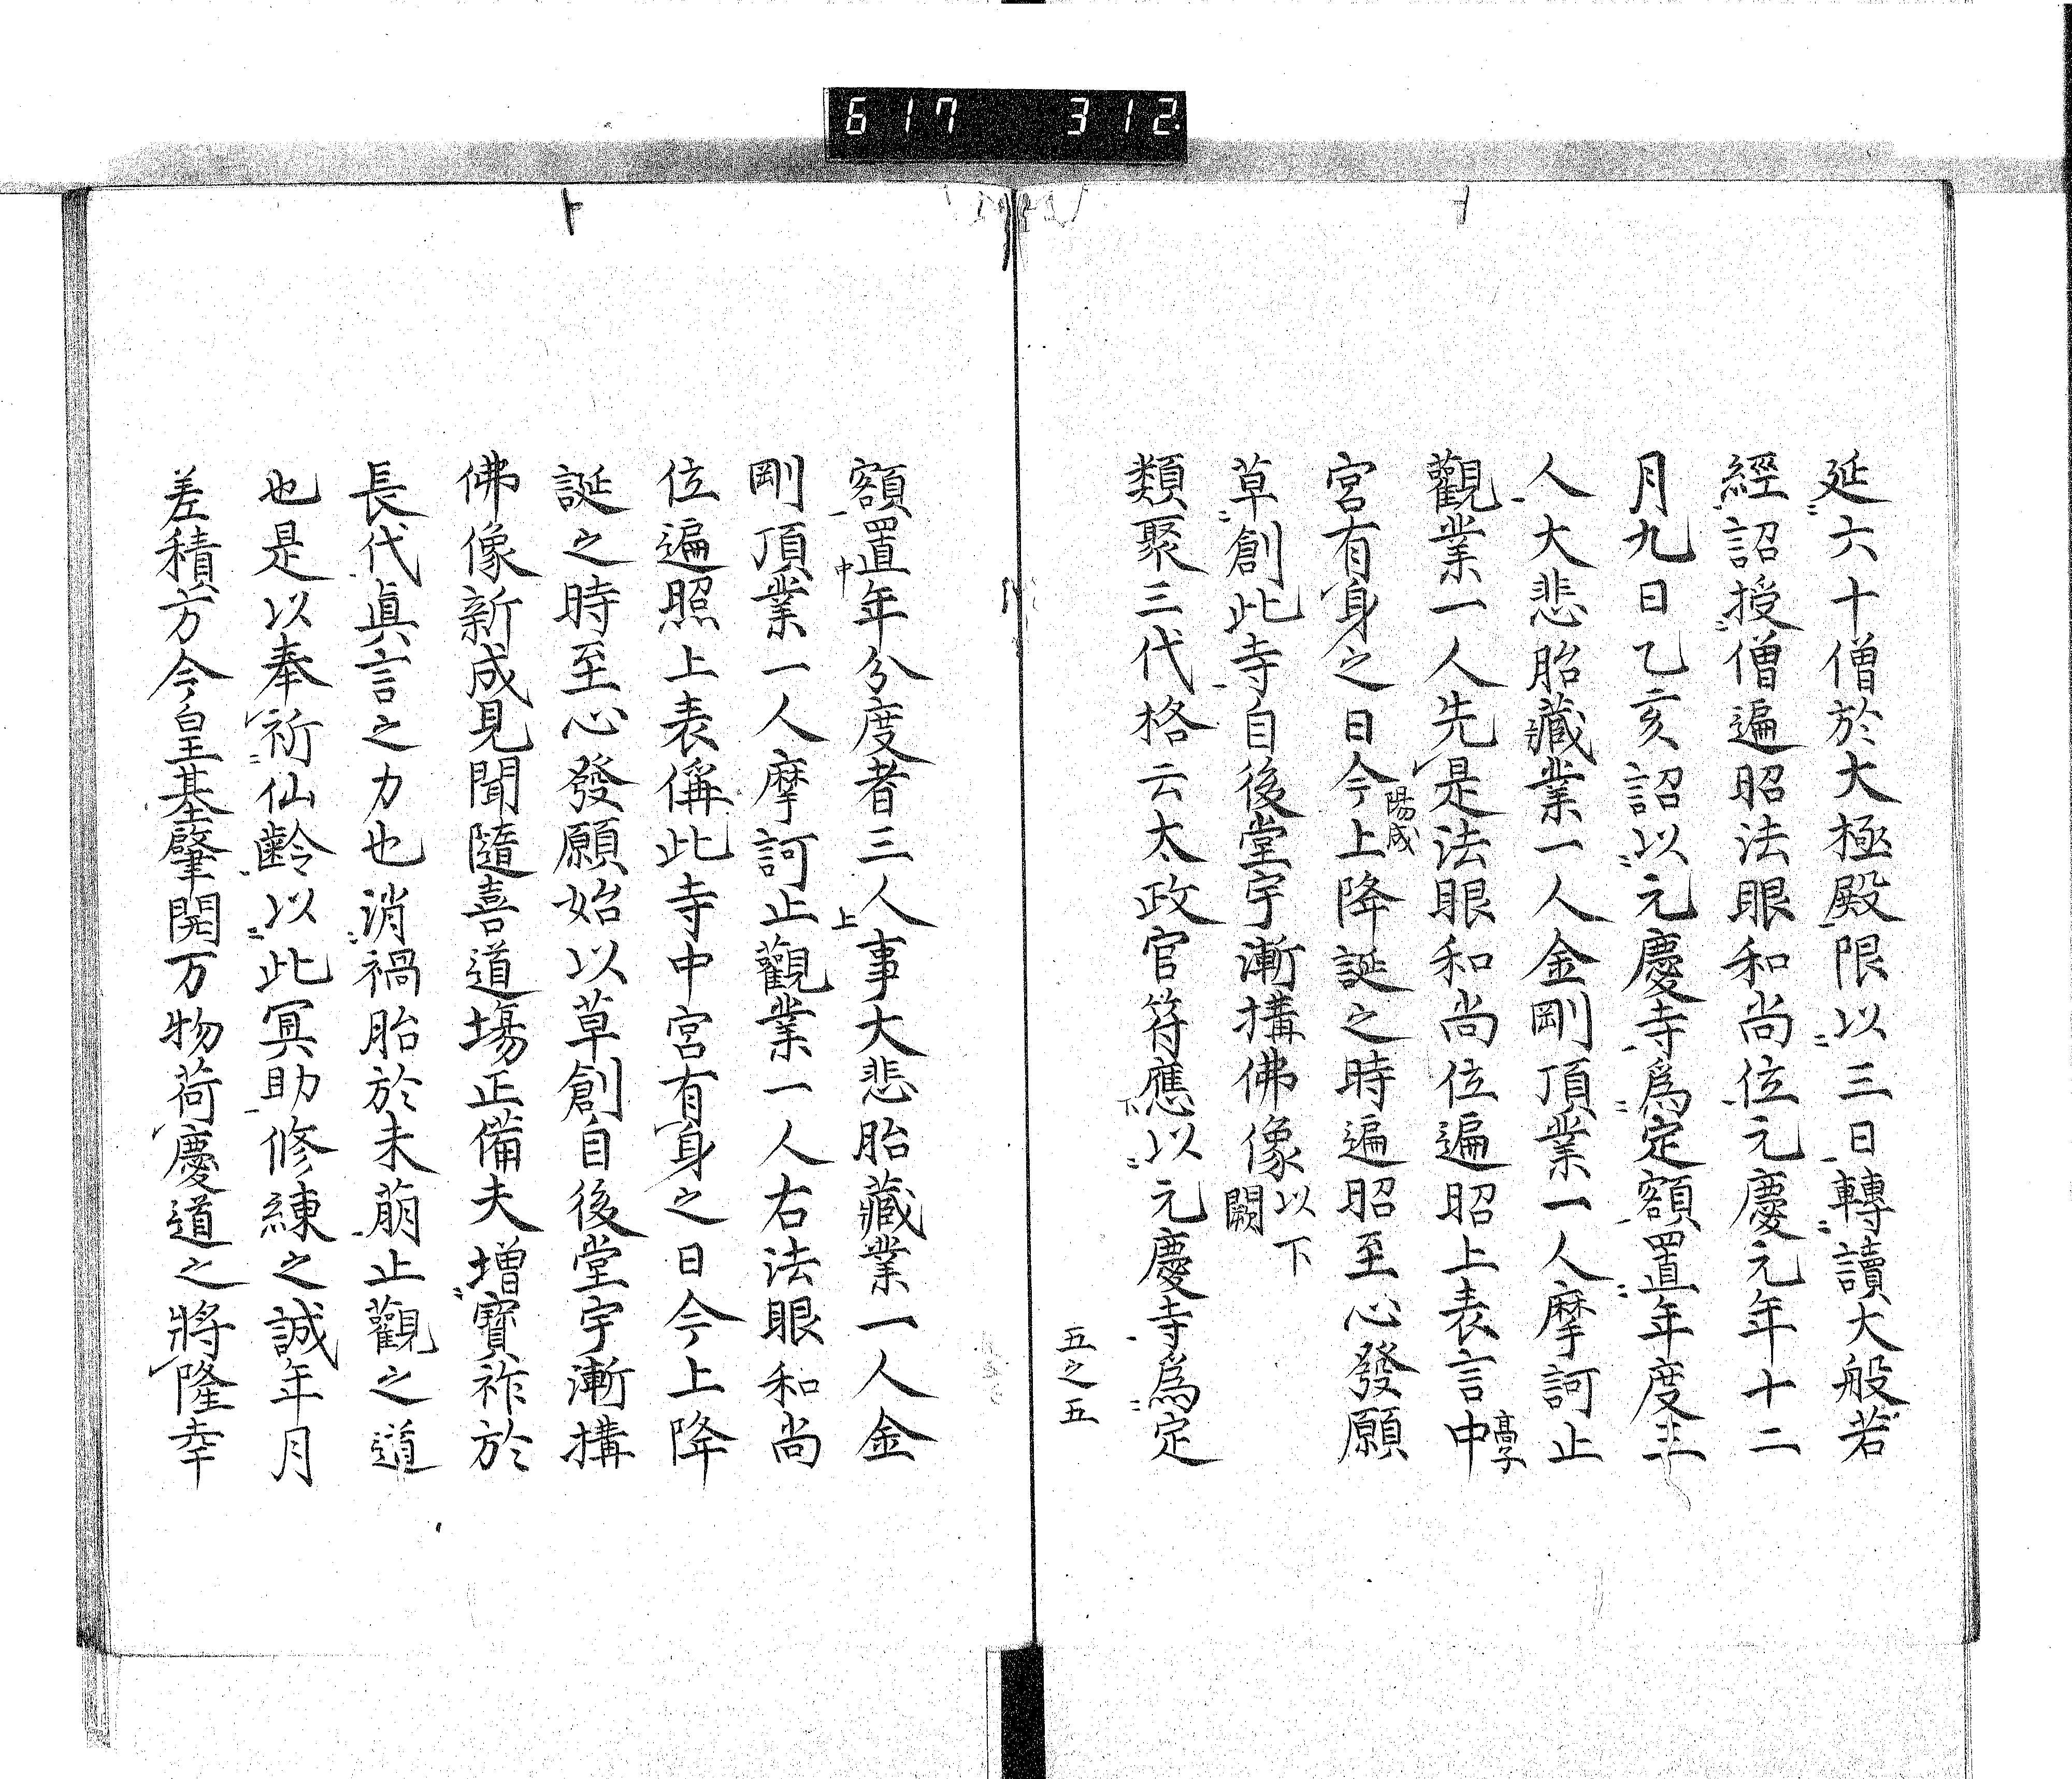 617 312
延六十僧於大極殿限以三日轉讀大般若
經詔授僧遍昭法眼和尚位元慶元年十二
月九日乙亥詔以元慶寺爲定額置年度三
人大悲胎藏業一人金剛頂業一人摩訶止
觀業一人先是法眼和尚位遍昭上表言中
高子
宮有身之日今上降誕之時遍昭至心發願
陽成
草創此寺自後堂宇漸搆佛像以下闕
類聚三代格云太政官符應以元慶寺爲定
下
五之五
額置年分度者三人事大悲胎藏業一人金
中
上
剛頂業一人摩訶止觀業一人右法眼和尚
位遍照上表偁此寺中宮有身之日今上降
誕之時至心發願始以草創自後堂宇漸搆
佛像新成見聞隨喜道塲正備夫增寳祚於
長代眞言之力也消禍胎於未萠止觀之道
也是以奉祈仙齡以此冥助修練之誠年月
差積方今皇基肇開万物荷慶道之將隆幸